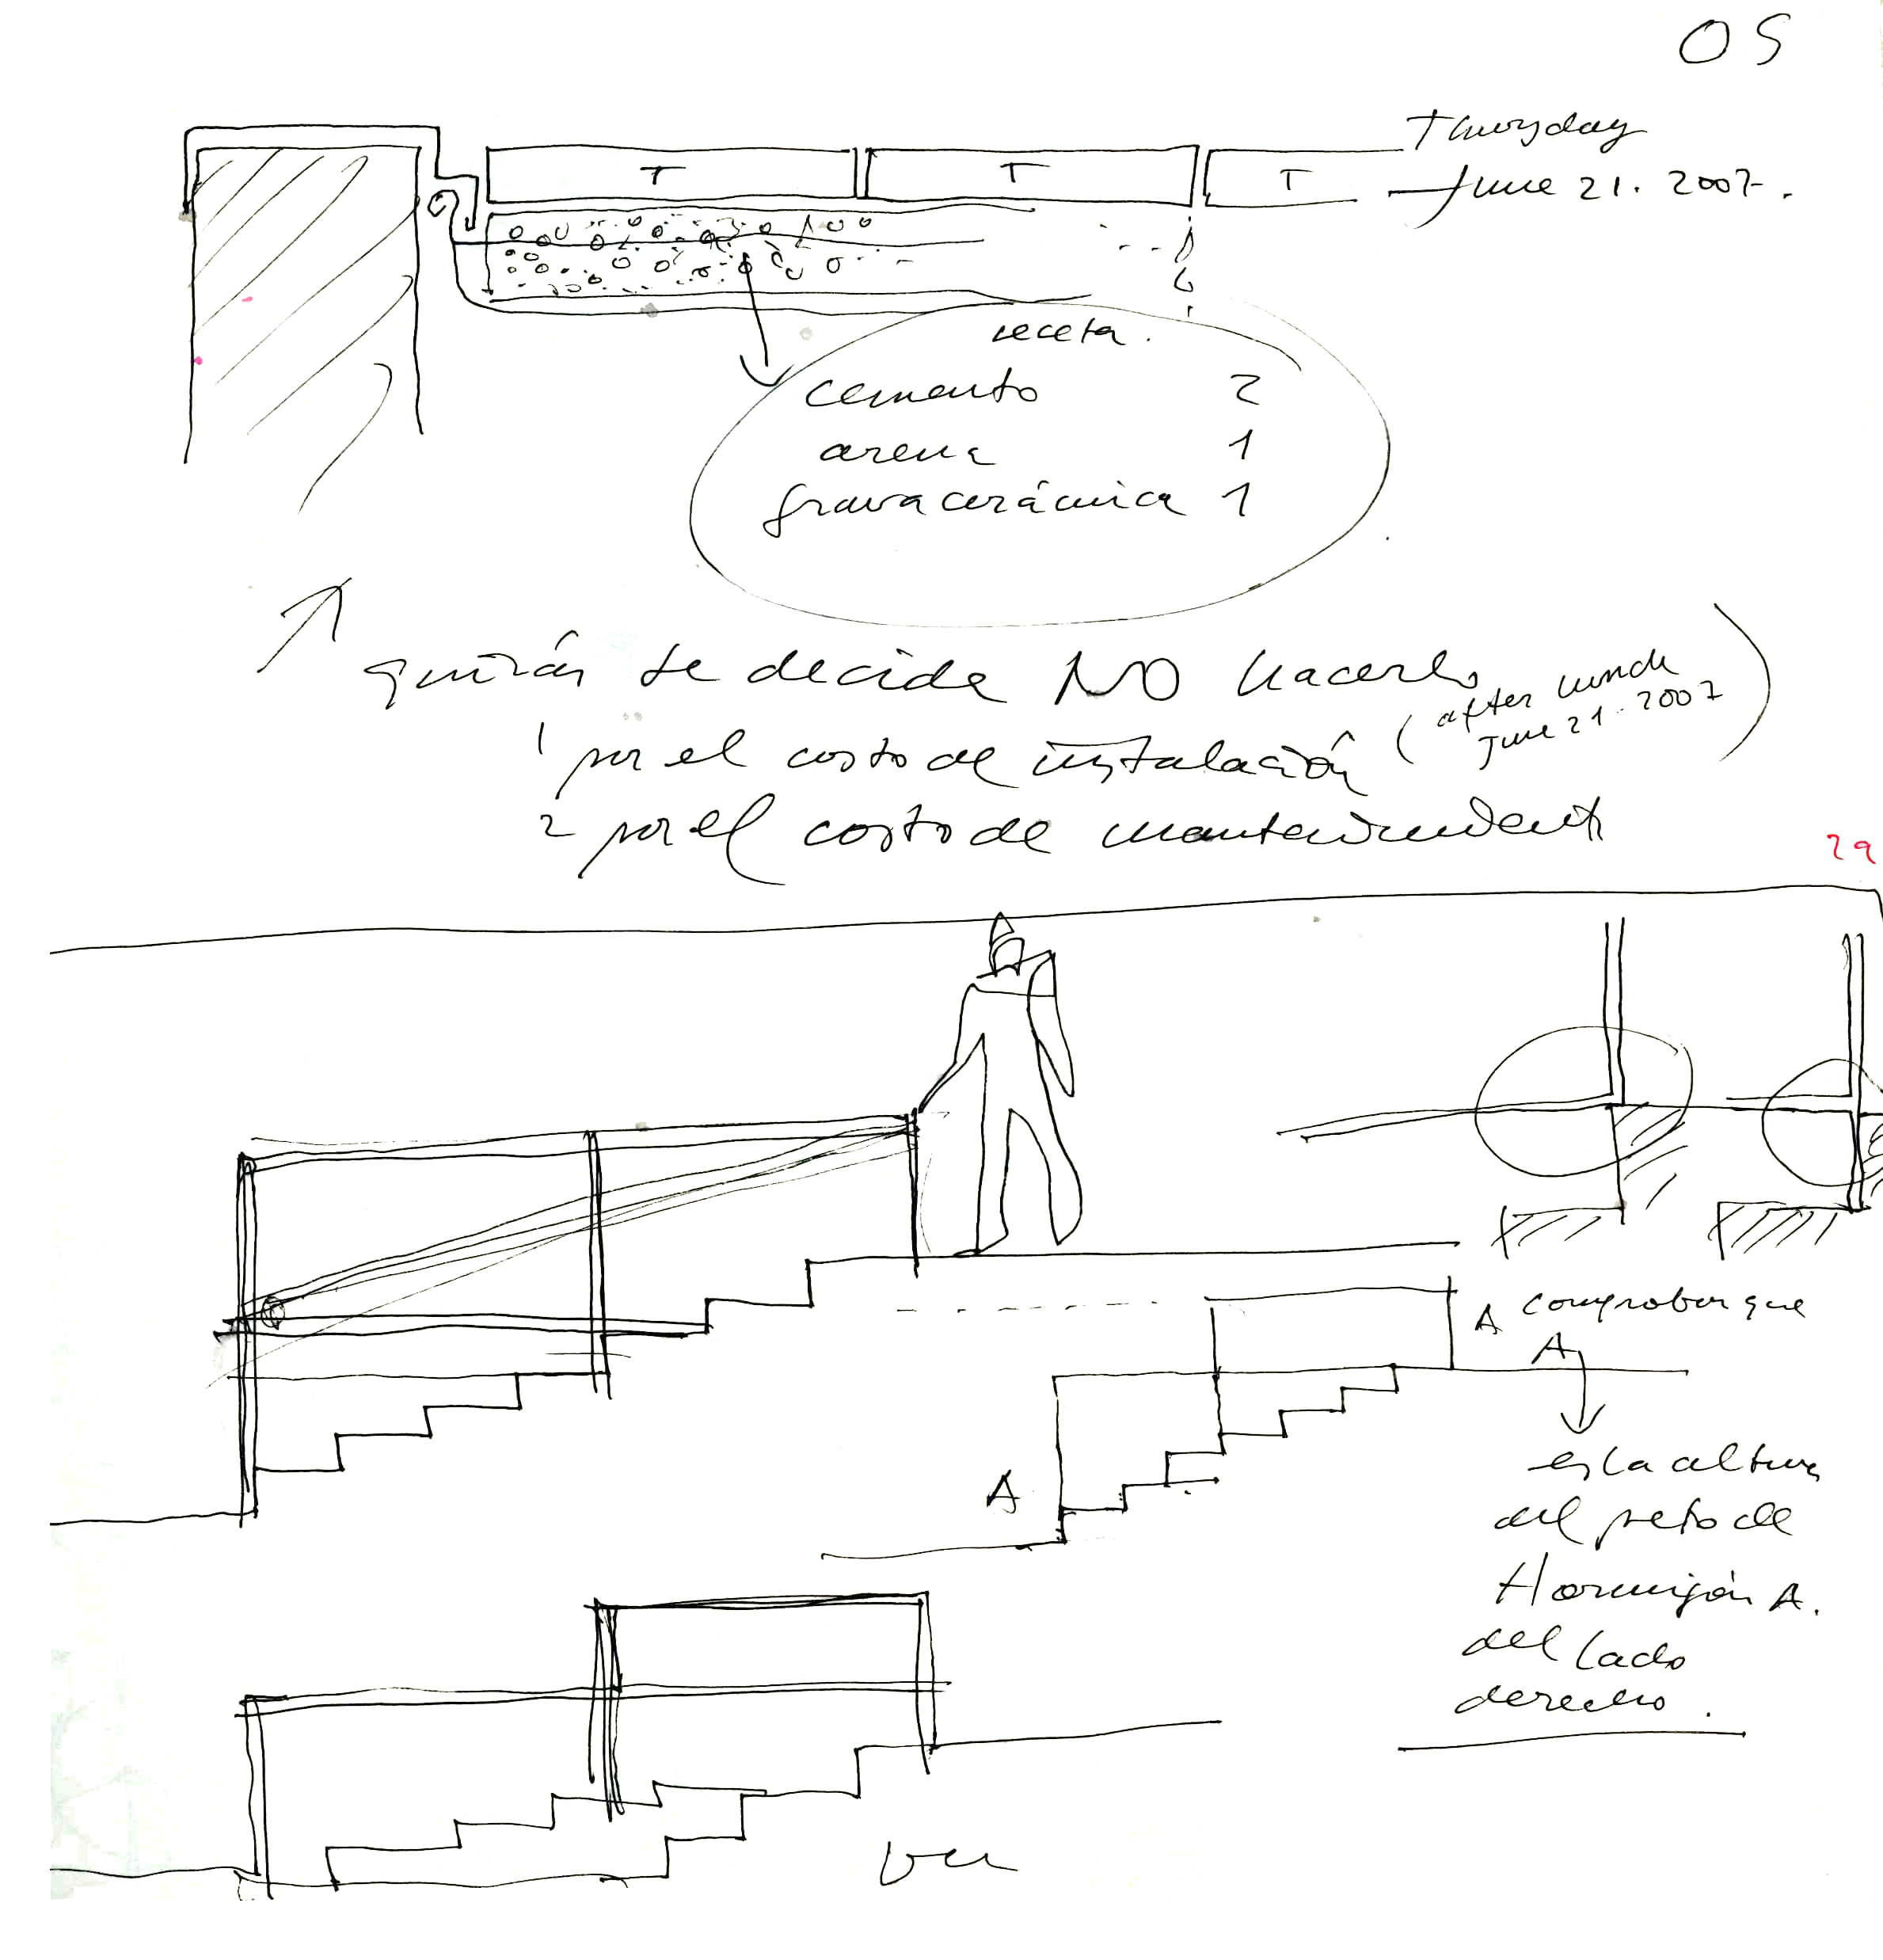 OS
Thursday
June 21. 2007.
T T T
receta.
cemento 2
arena 1
grava cerámica 1
quizás se decida NO hacerlo
(after lunch
June 21. 2007)
1 por el costo de instalación
2 por el costo de mantenimiento
29
A comprobar que
A
es la altura
del peto de
Hormigón A.
del lado
derecho.
A